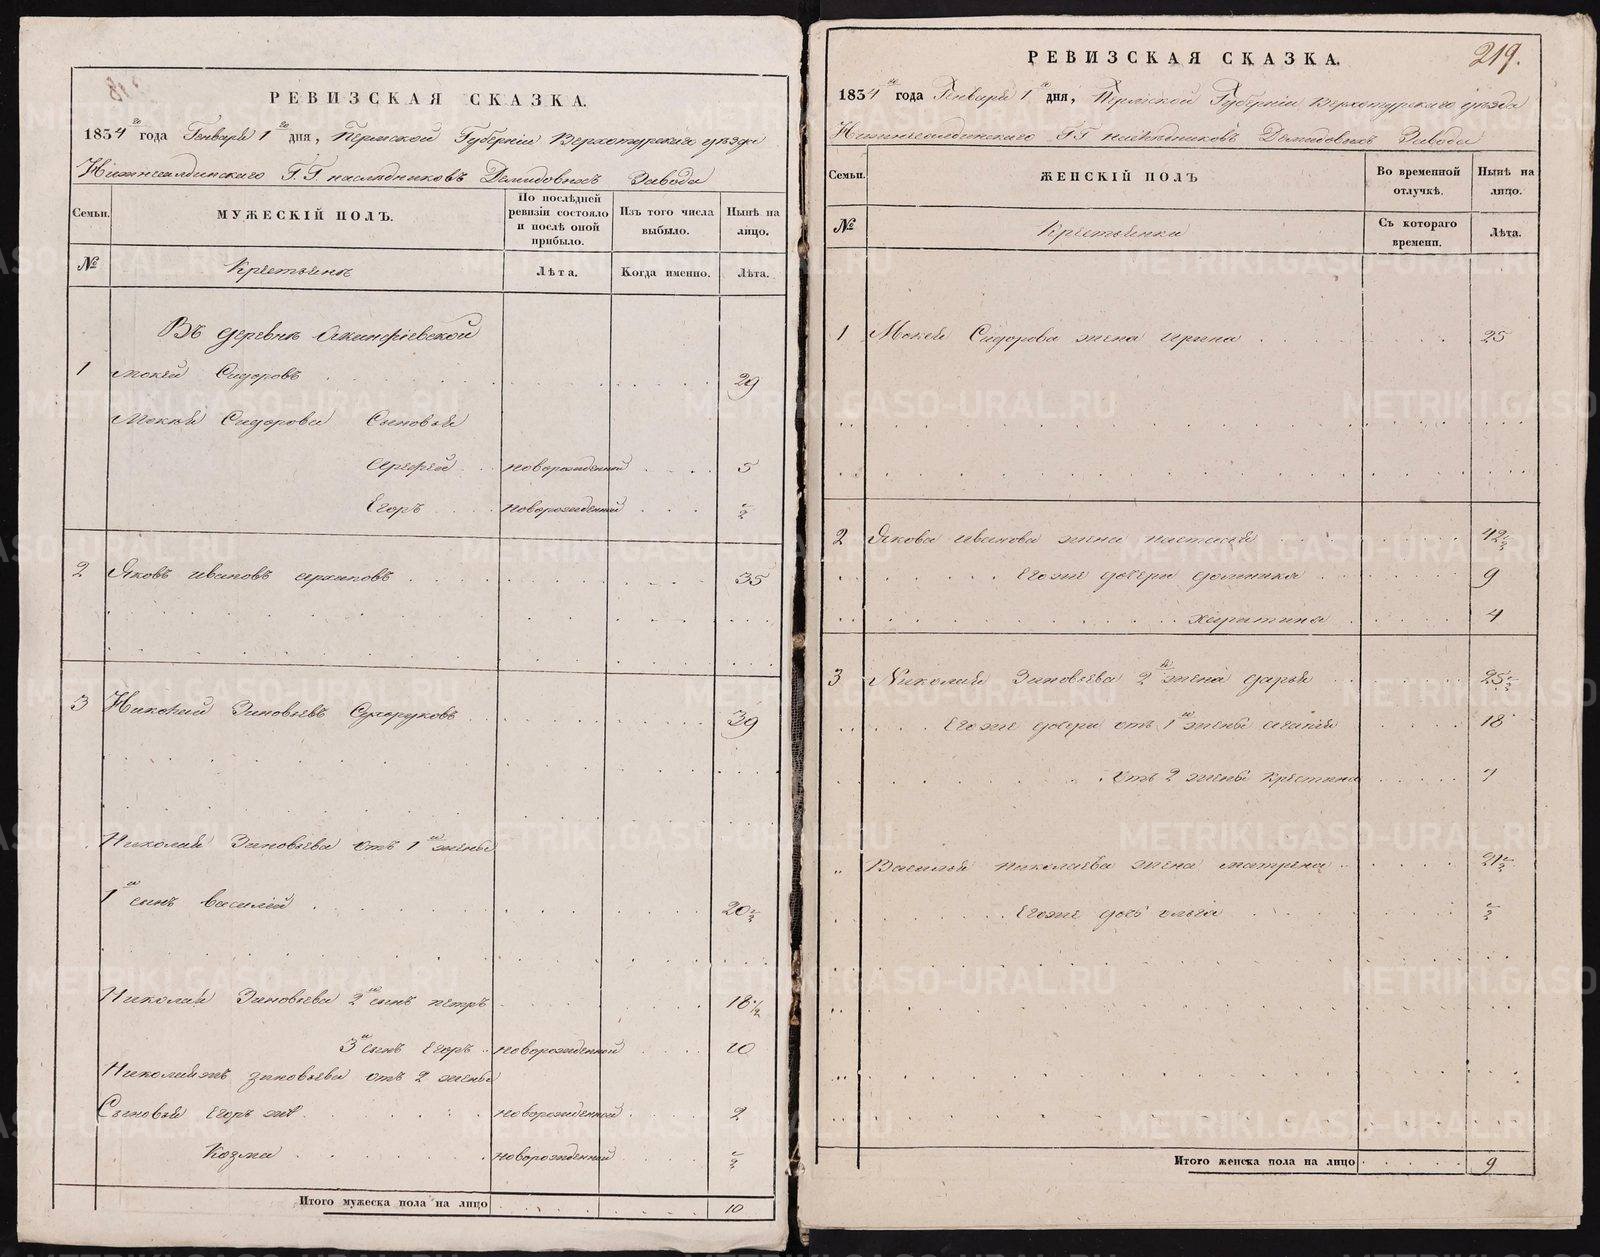 РЕВИЗСКАЯ СКАЗКА.
1834 го года Генваря 1 го дня, Пермской Губерніи Верхотурскаго уѣзда
Нижнесалдинскаго Г.Г. наслѣдниковъ Демидовыхъ Завода
Семьи. МУЖЕСКІЙ ПОЛЪ. По послѣдней ревизіи состояло и послѣ оной прибыло. Изъ того числа выбыло. Нынѣ на лицо.
№ Крестьянъ Лѣта. Когда именно. Лѣта.
Въ деревнѣ Акинфіевской
1 Мокей Сидоровъ 29
Мокея Сидорова Сыновья
Сергей новорожденной 5
Егоръ новорожденной ½
2 Яковъ Ивановъ Архиповъ 35
3 Николай Зиновьевъ Сухоруковъ 39
Николая Зиновьева отъ 1й жены
1й сынъ Василей 20½
Николая Зиновьева 2й сынъ Петръ 18½
3й сынъ Егоръ новорожденной 10
Николаяжъ Зиновьева отъ 2 жены
Сыновья Егоръ же новорожденной 2
Козма новорожденной ½
Итого мужеска пола на лицо 10
219.
РЕВИЗСКАЯ СКАЗКА.
1834 го года Генваря 1 го дня, Пермской Губерніи Верхотурскаго уѣзда
Нижнесалдинскаго Г.Г. наслѣдниковъ Демидовыхъ Завода
Семьи. ЖЕНСКІЙ ПОЛЪ Во временной отлучкѣ. Нынѣ на лицо.
№ Крестьянки Съ котораго времени. Лѣта.
1 Мокея Сидорова жена Ирина 25
2 Якова Иванова жена Настасья 42½
Егоже дочери Домника 9
Харитина 4
3 Николая Зиновьева 2я жена Дарья 25½
Егоже дочери отъ 1й жены Агапея 18
отъ 2 жены Крестина 7
" Василья Николаева жена Матрена 21½
Егоже дочь Ольга ½
Итого женска пола на лицо 9
METRIKI.GASO-URAL.RU